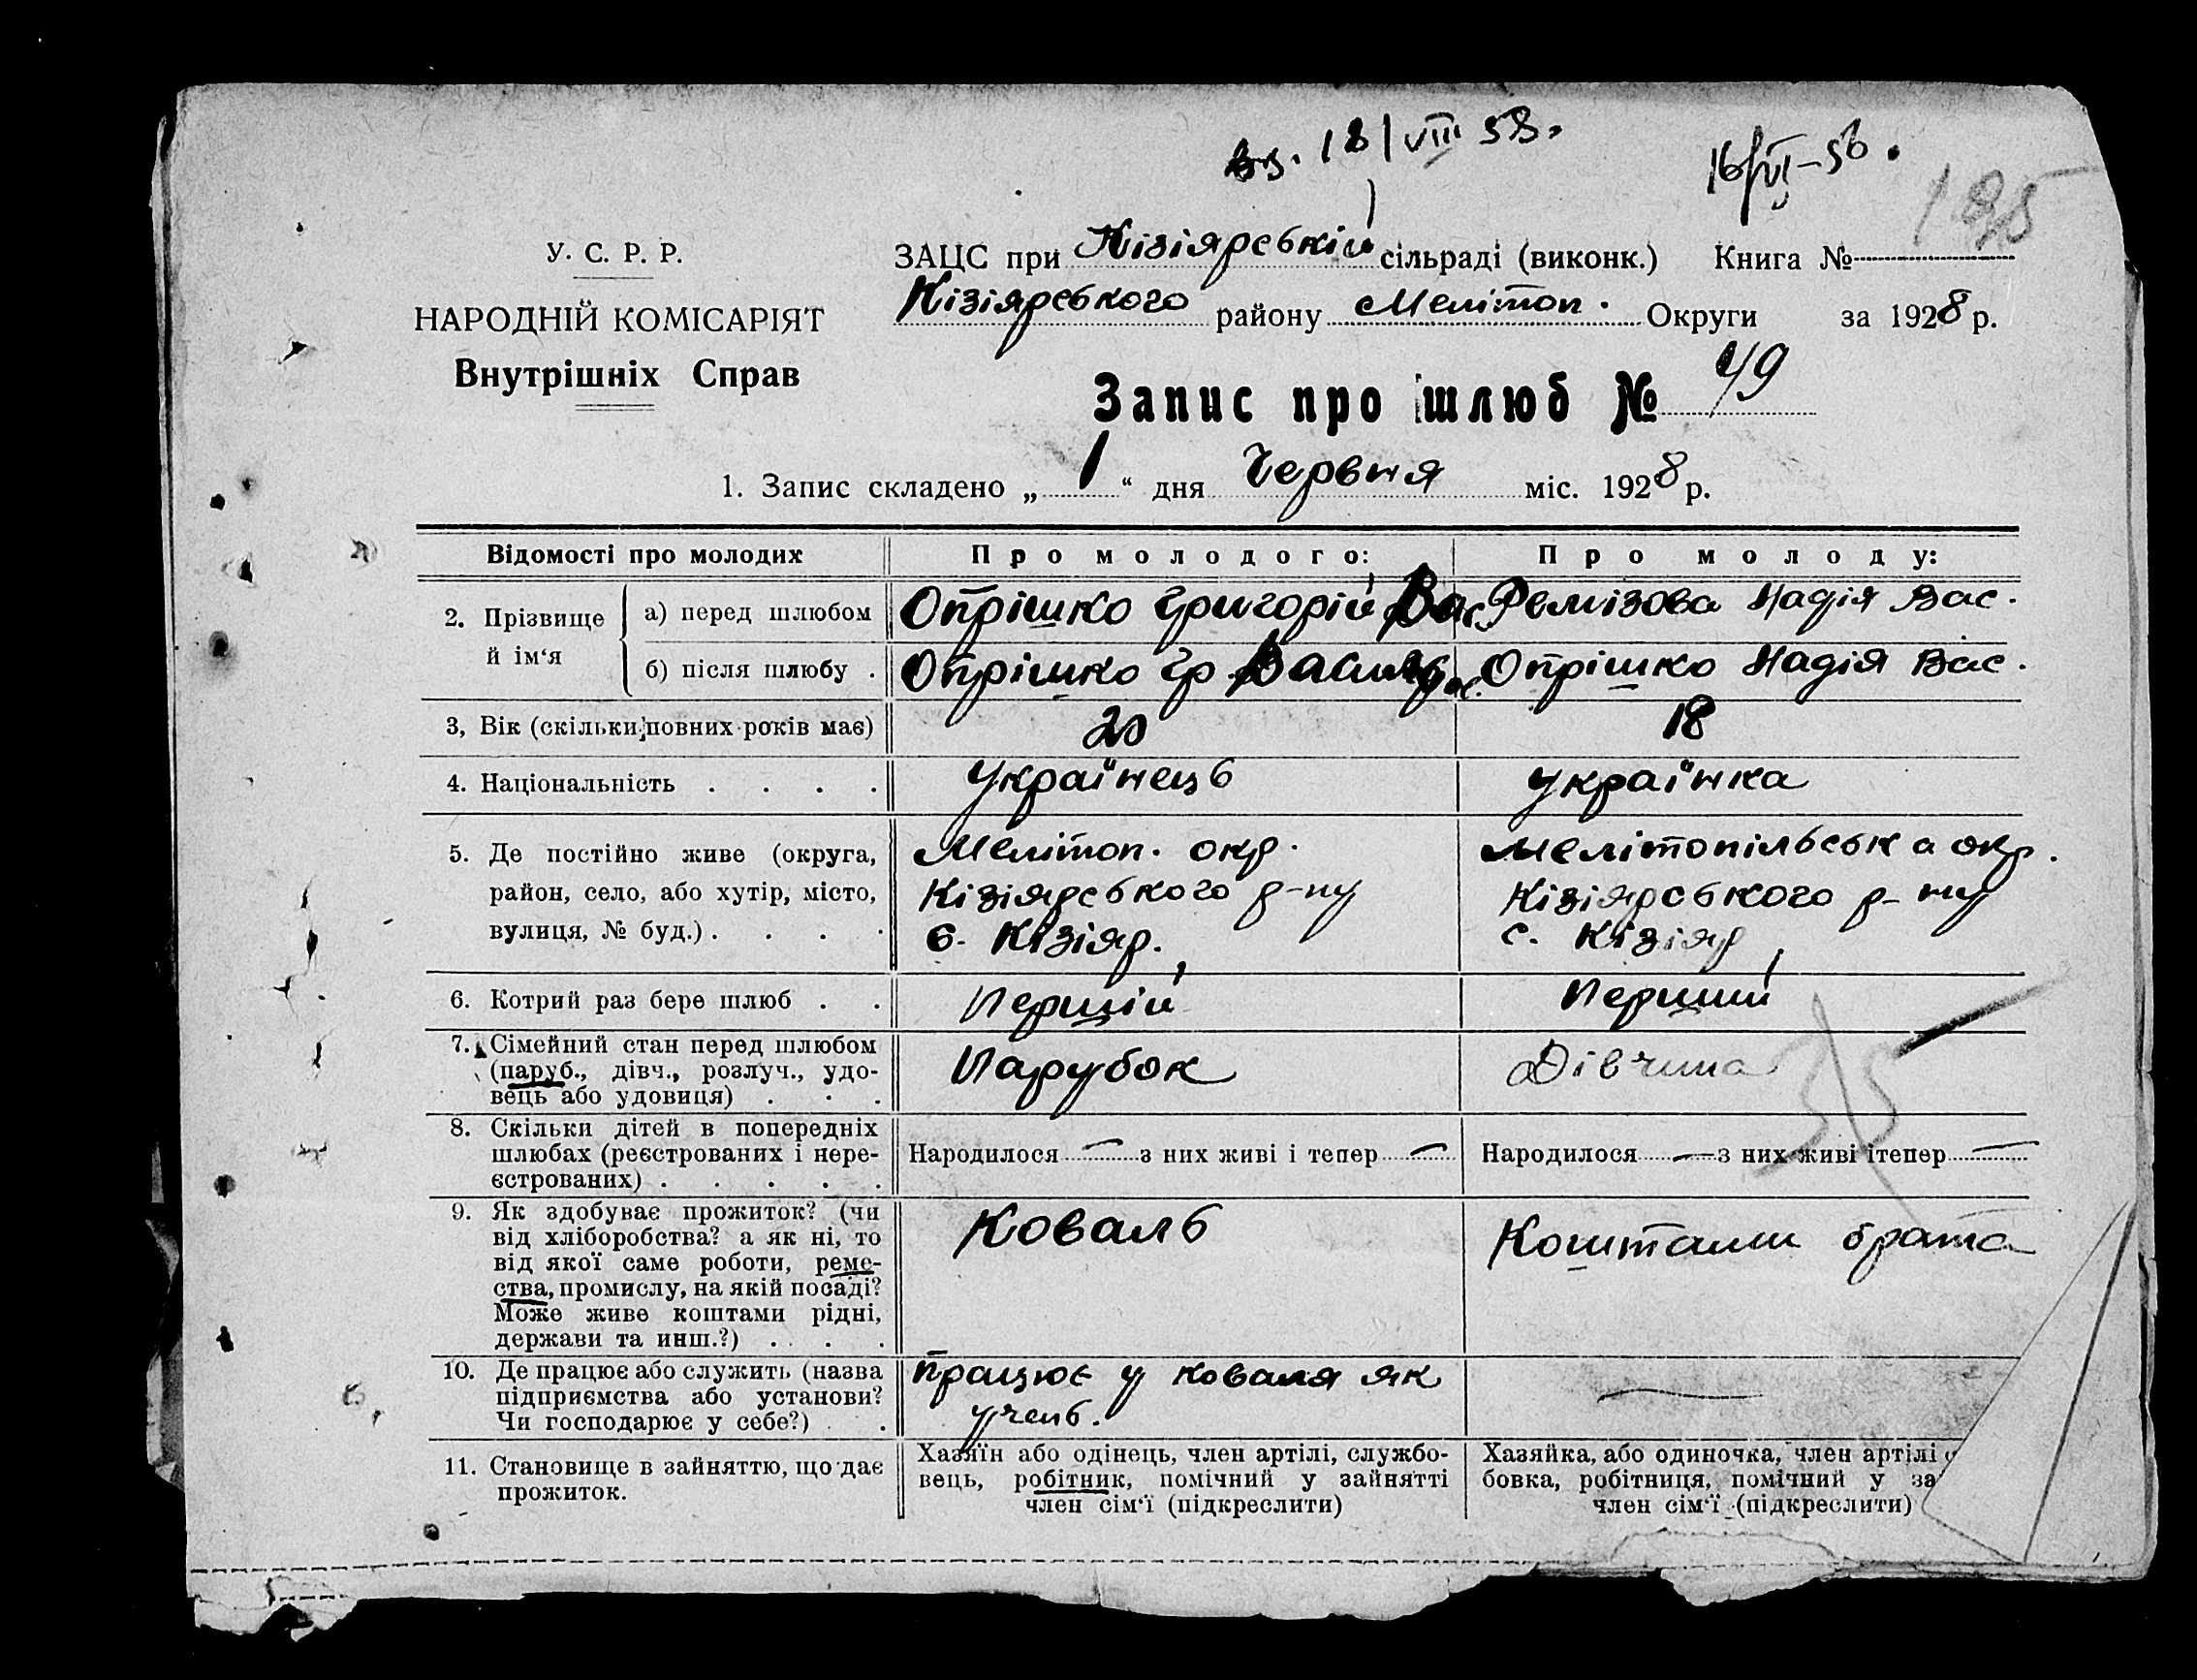 18/VIII 58.
16/VI-56.
195
У. С. Р. Р.
НАРОДНІЙ КОМІСАРІЯТ
Внутрішніх Справ
ЗАЦС при Кізіярській сільраді (виконк.) Книга №
Кізіярського району Мелітоп. Округи за 1928 р.
Запис про шлюб № 49
1. Запис складено „ 1 “ дня Червня міс. 1928 р.
Відомості про молодих
Про молодого:
Про молоду:
2. Прізвище й ім‘я
а) перед шлюбом
Опрішко Григорій Вас.
Ремізова Надія Вас.
б) після шлюбу .
Опрішко Гр
Опрішко Надія Вас.
3, Вік (скільки повних років має)
20
18
4. Національність . . . .
Українець
українка
5. Де постійно живе (округа,
район, село, або хутір, місто,
вулиця, № буд.) . . . .
Мелітоп. окр.
Кізіярського р-ну
с. Кізіяр.
Мелітопільська окр.
Кізіярського р-ну
с. Кізіяр
6. Котрий раз бере шлюб . .
Перщій
Перший
7. Сімейний стан перед шлюбом
(паруб., дівч., розлуч., удо-
вець або удовиця) . . .
Парубок
Дівчина
35
8. Скільки дітей в попередніх
шлюбах (реєстрованих і нере-
єстрованих) . . . . .
Народилося — з них живі і тепер —
Народилося — з них живі ітепер —
9. Як здобуває прожиток? (чи
від хліборобства? а як ні, то
від якої саме роботи, реме-
ства, промислу, на якій посаді?
Може живе коштами рідні,
держави та инш.?) . . .
Коваль
Коштами брата
10. Де працює або служить (назва
підприємства або установи?
Чи господарює у себе?) . .
працює у коваля як
учень.
—
11. Становище в зайняттю, що дає
прожиток.
Хазяїн або одінець, член артілі, службо-
вець, робітник, помічний у зайнятті
член сім‘ї (підкреслити)
Хазяйка, або одиночка, член артілі
бовка, робітниця, помічний у за
член сім‘ї (підкреслити)